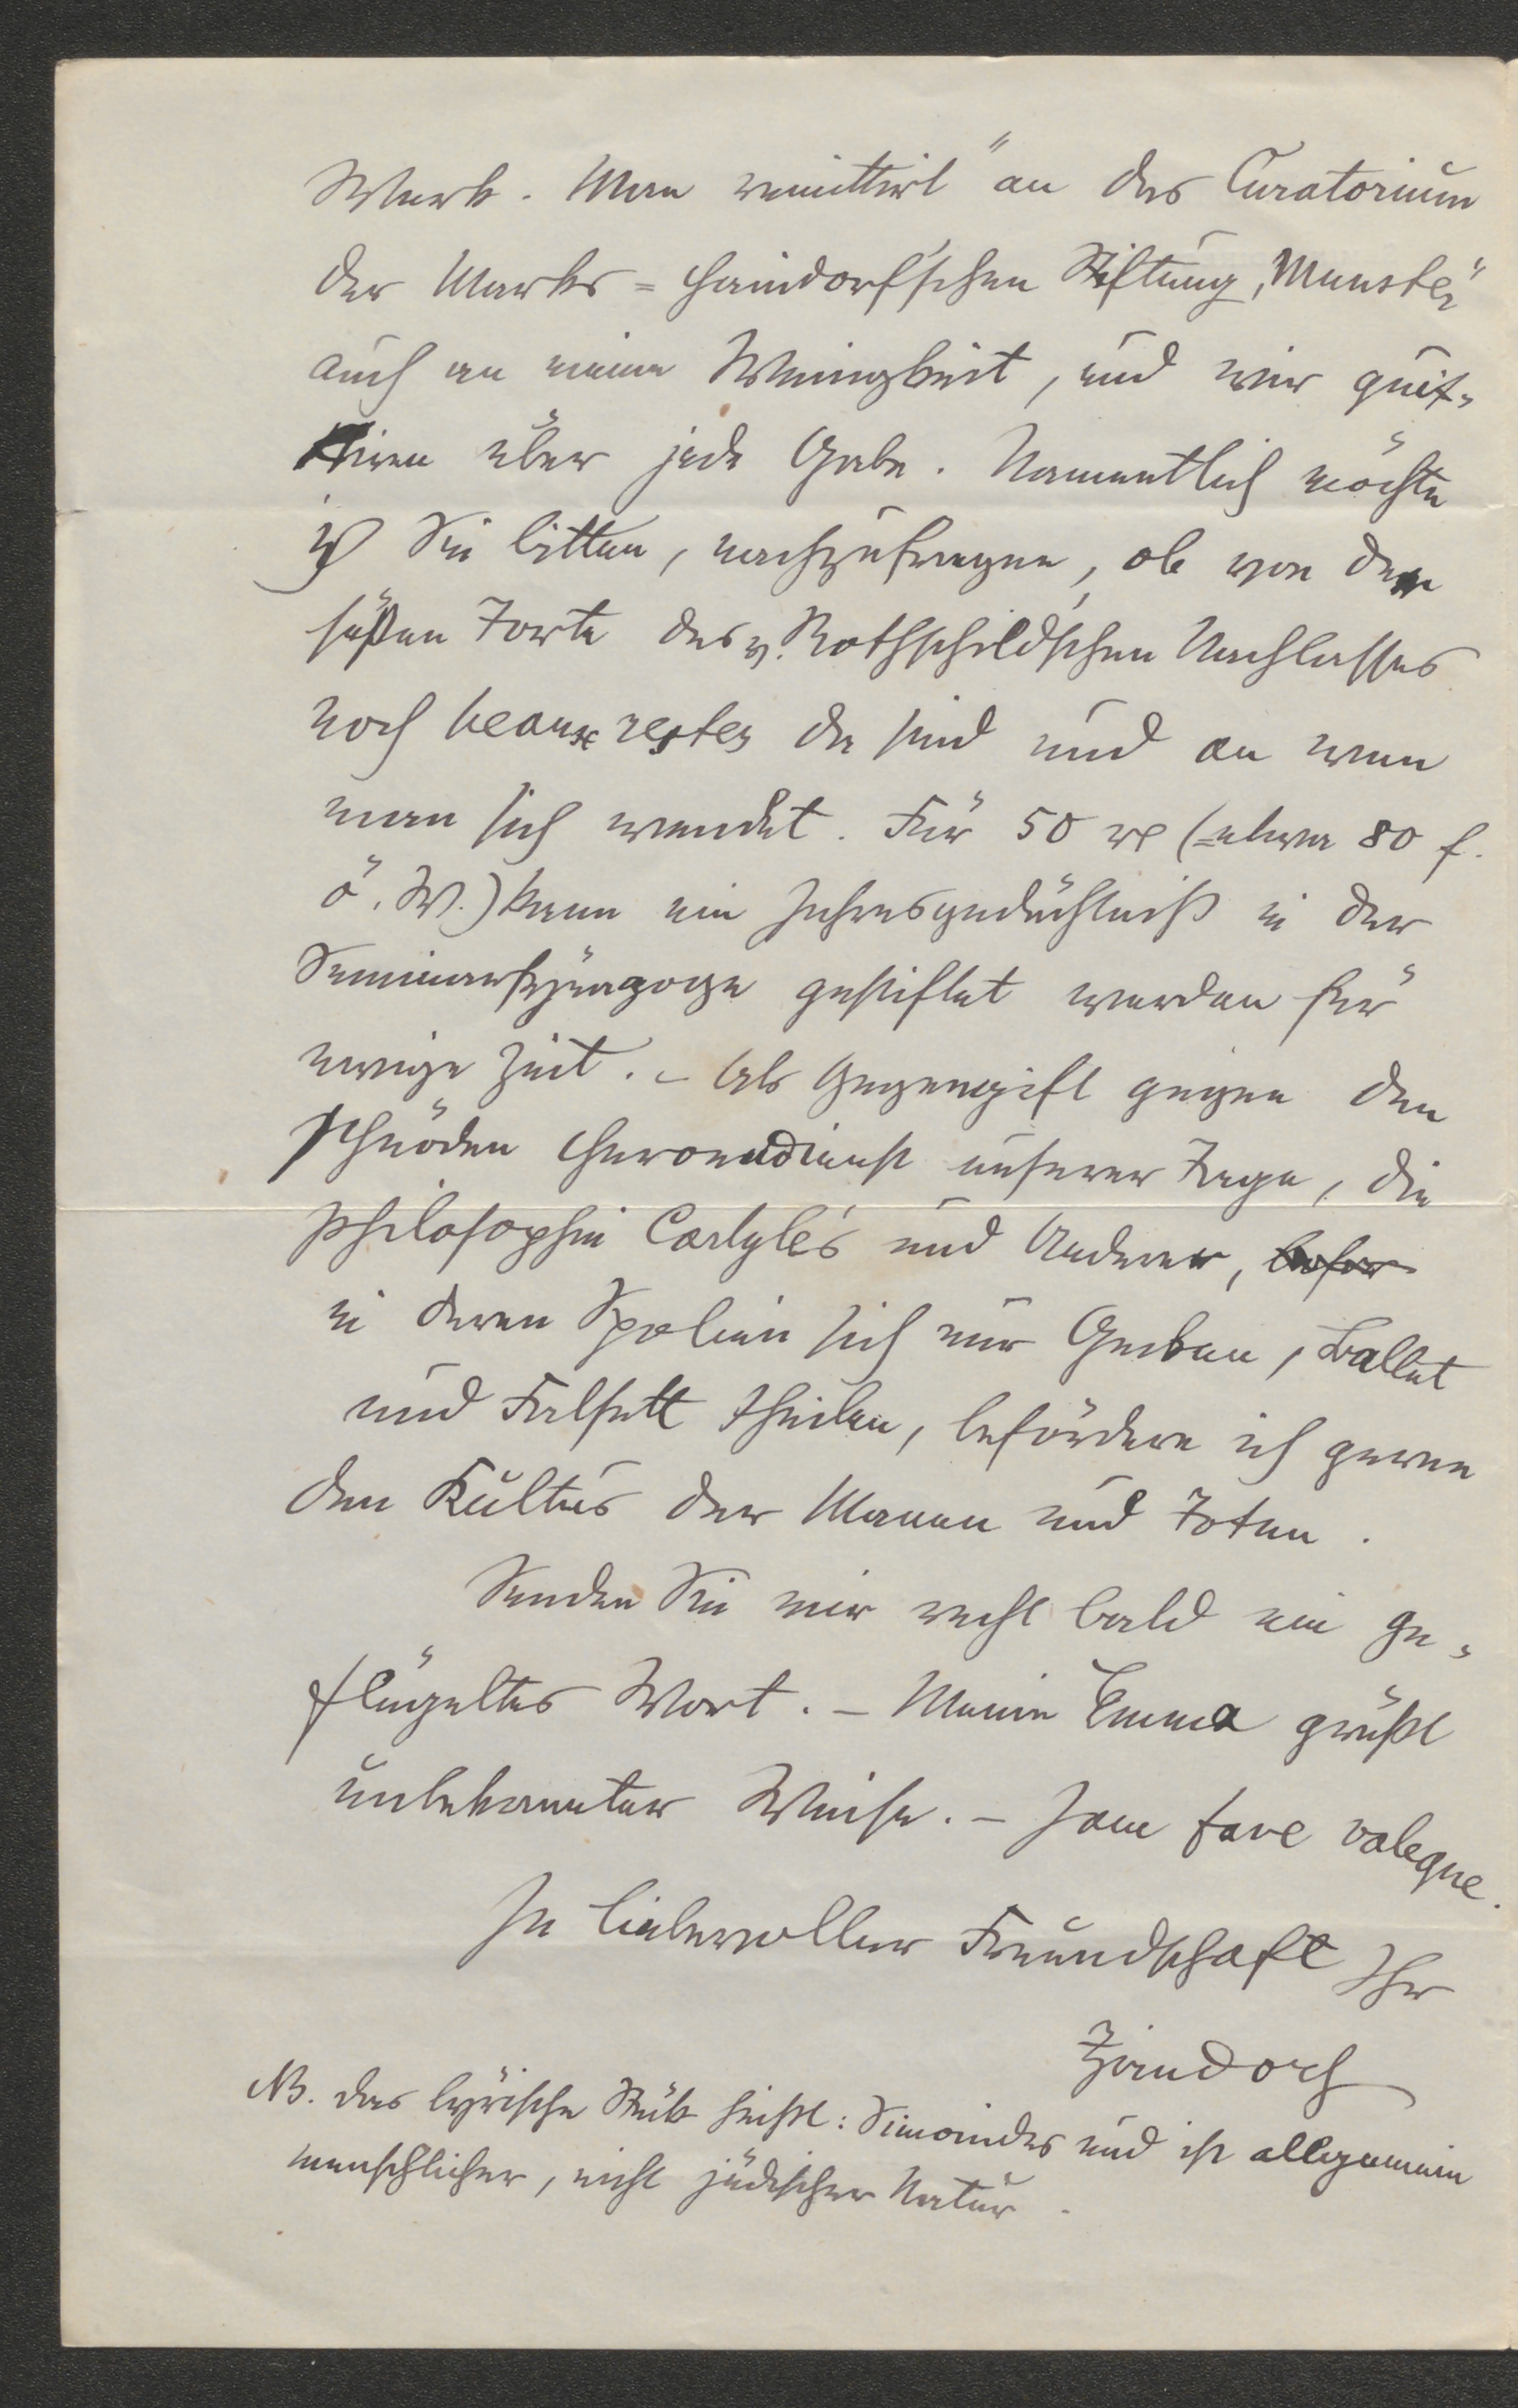 Werk. Man remittirt "an das Curatorium
der Marks=Haindorf'schen Stiftung, Munster"
auch an meine Wenigkeit, und wir quit-
tiren über jede Gabe. Namentlich möchte
ich Sie bitten, nachzufragen, ob von der
süßen Torte des v. Rothschild'schen Nachlasses
noch beaux restes da sind und an wen
man sich wendet. Für 50 rℓ (=etwa 80 f.
ö. W.) kann ein Jahresgedächtniß in der
Seminarsynagoge gestiftet werden für
ewige Zeit. – Als Gegengift gegen den
schnöden Heroendienst unserer Tage, die
Philosophie Carlyle's und Anderer,
in deren Spolien sich nur Gecken, Ballet
und Falsett theilen, befördere ich gerne
den Kultus der Manen und Toten.
Senden Sie mir recht bald ein ge-
flügeltes Wort. – Meine Emma grüßt
unbekannter Weise. – Jam fave valeque.
In liebevoller Freundschaft Ihr
Zirndorf
NB. das lyrische Stück heißt: Simonides und ist allgemein
menschlicher, nicht jüdischer Natur.